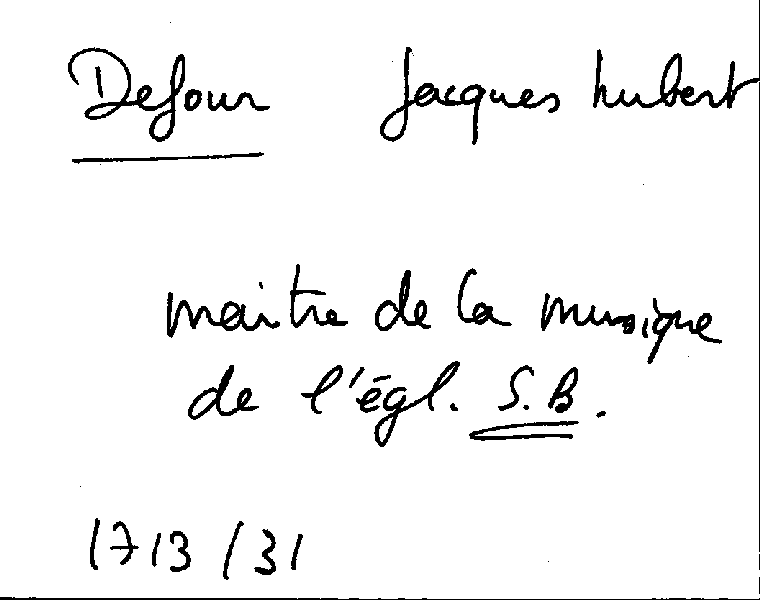 Defour Jacques hubert
maitre de la musique
de l'égl. S.B.
1713/31